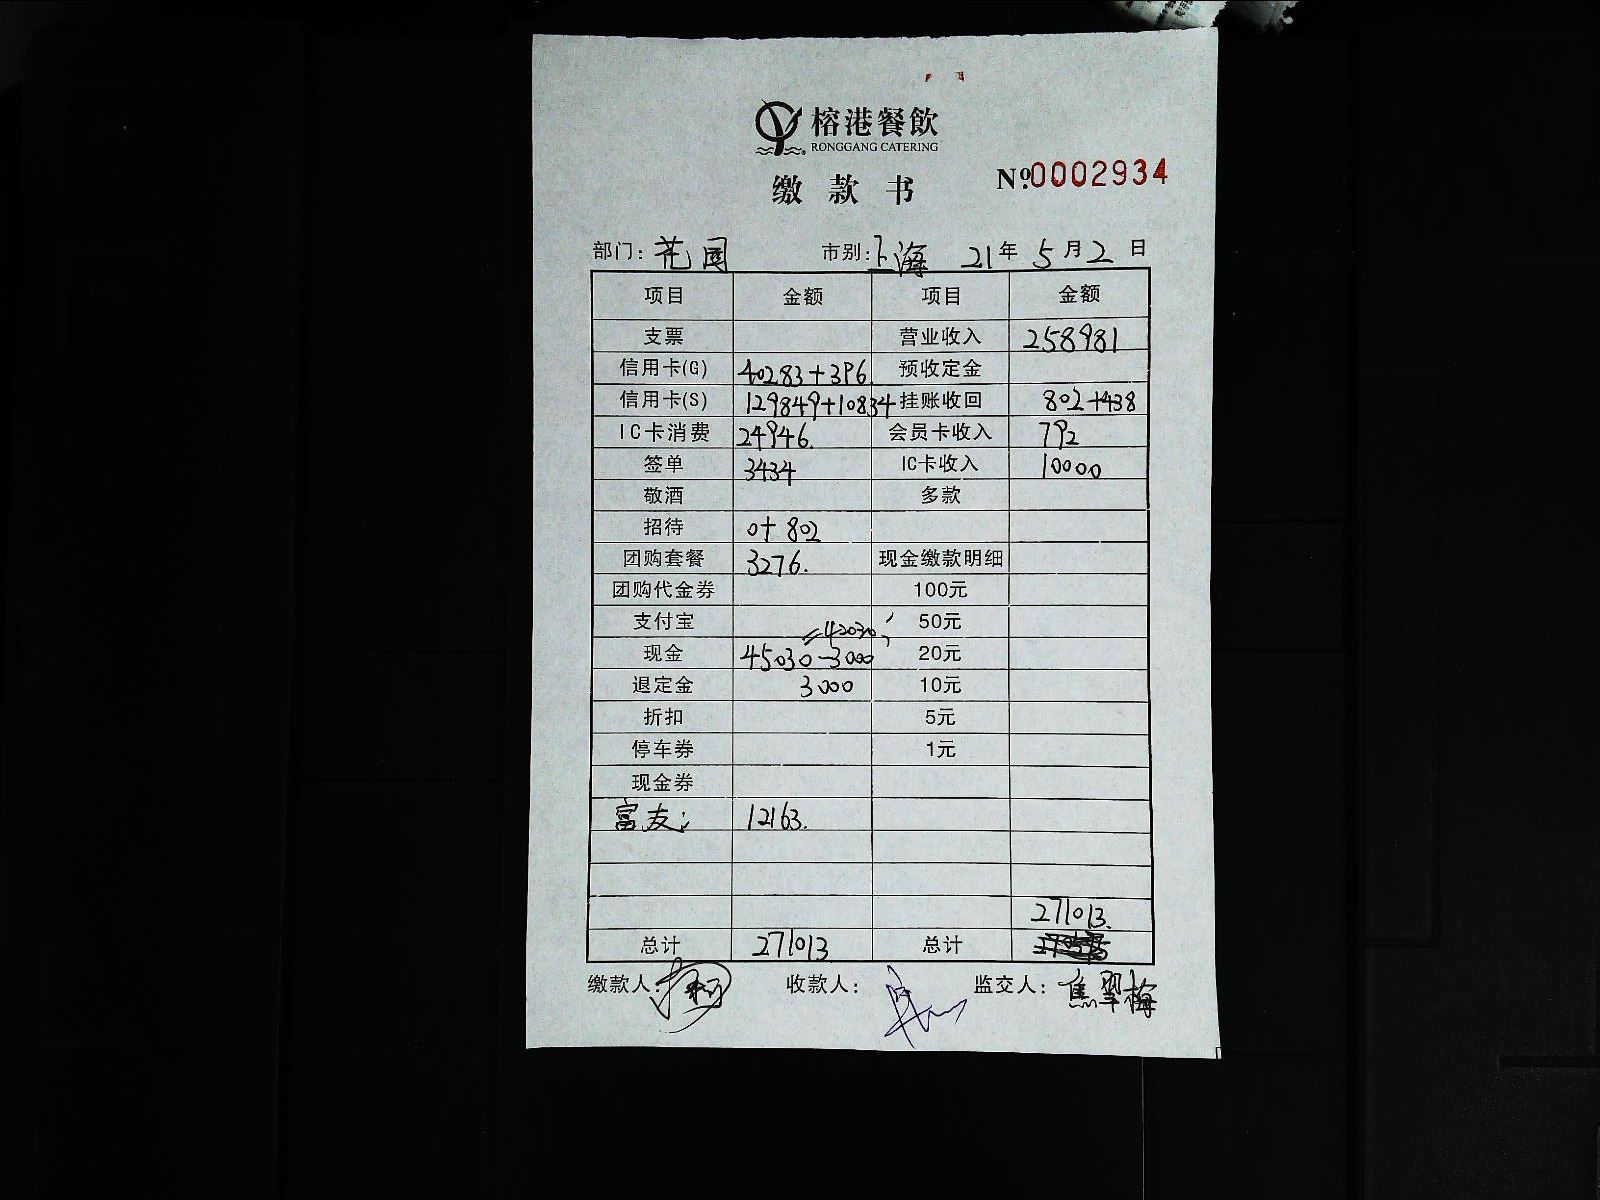 榕港餐飲
RONGGANG CATERING
缴款书
No.0002934
部门: 花园 市别: 上海 21年 5月 2日
项目 金额 项目 金额
支票 营业收入 258981
信用卡(G) 40283+396. 预收定金
信用卡(S) 129849+10834 挂账收回 802+438
IC卡消费 24946. 会员卡收入 792
签单 3434 IC卡收入 10000
敬酒 多款
招待 0+802
团购套餐 3276. 现金缴款明细
团购代金券 100元
支付宝 50元
=42030
现金 45030-3000 20元
退定金 3000 10元
折扣 5元
停车券 1元
现金券
富友: 12163.
271013.
总计 271013 总计
缴款人: 收款人: 监交人: 焦翠梅